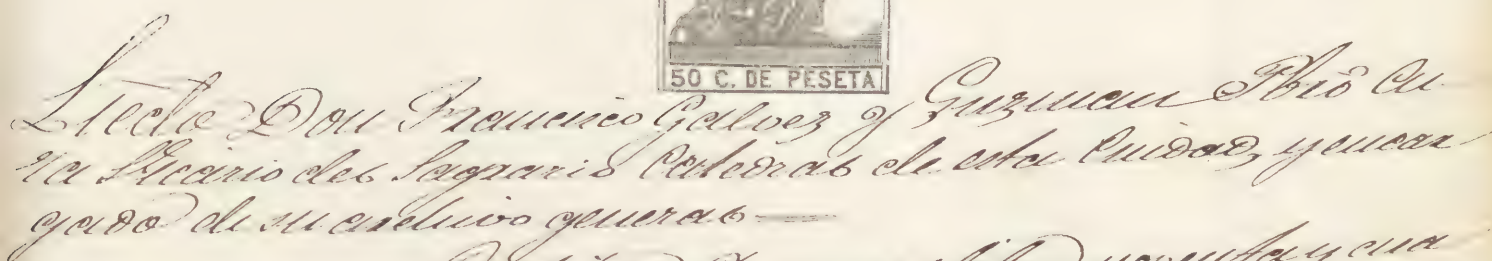 50 C. DE PESETA
Licdo Don Francisco Galvez y Guzman Pbrô Cu-
ra Ecónio del Sagrario Catedral de esta Ciudad, y encar
gado de su archivo general
noventa y cua